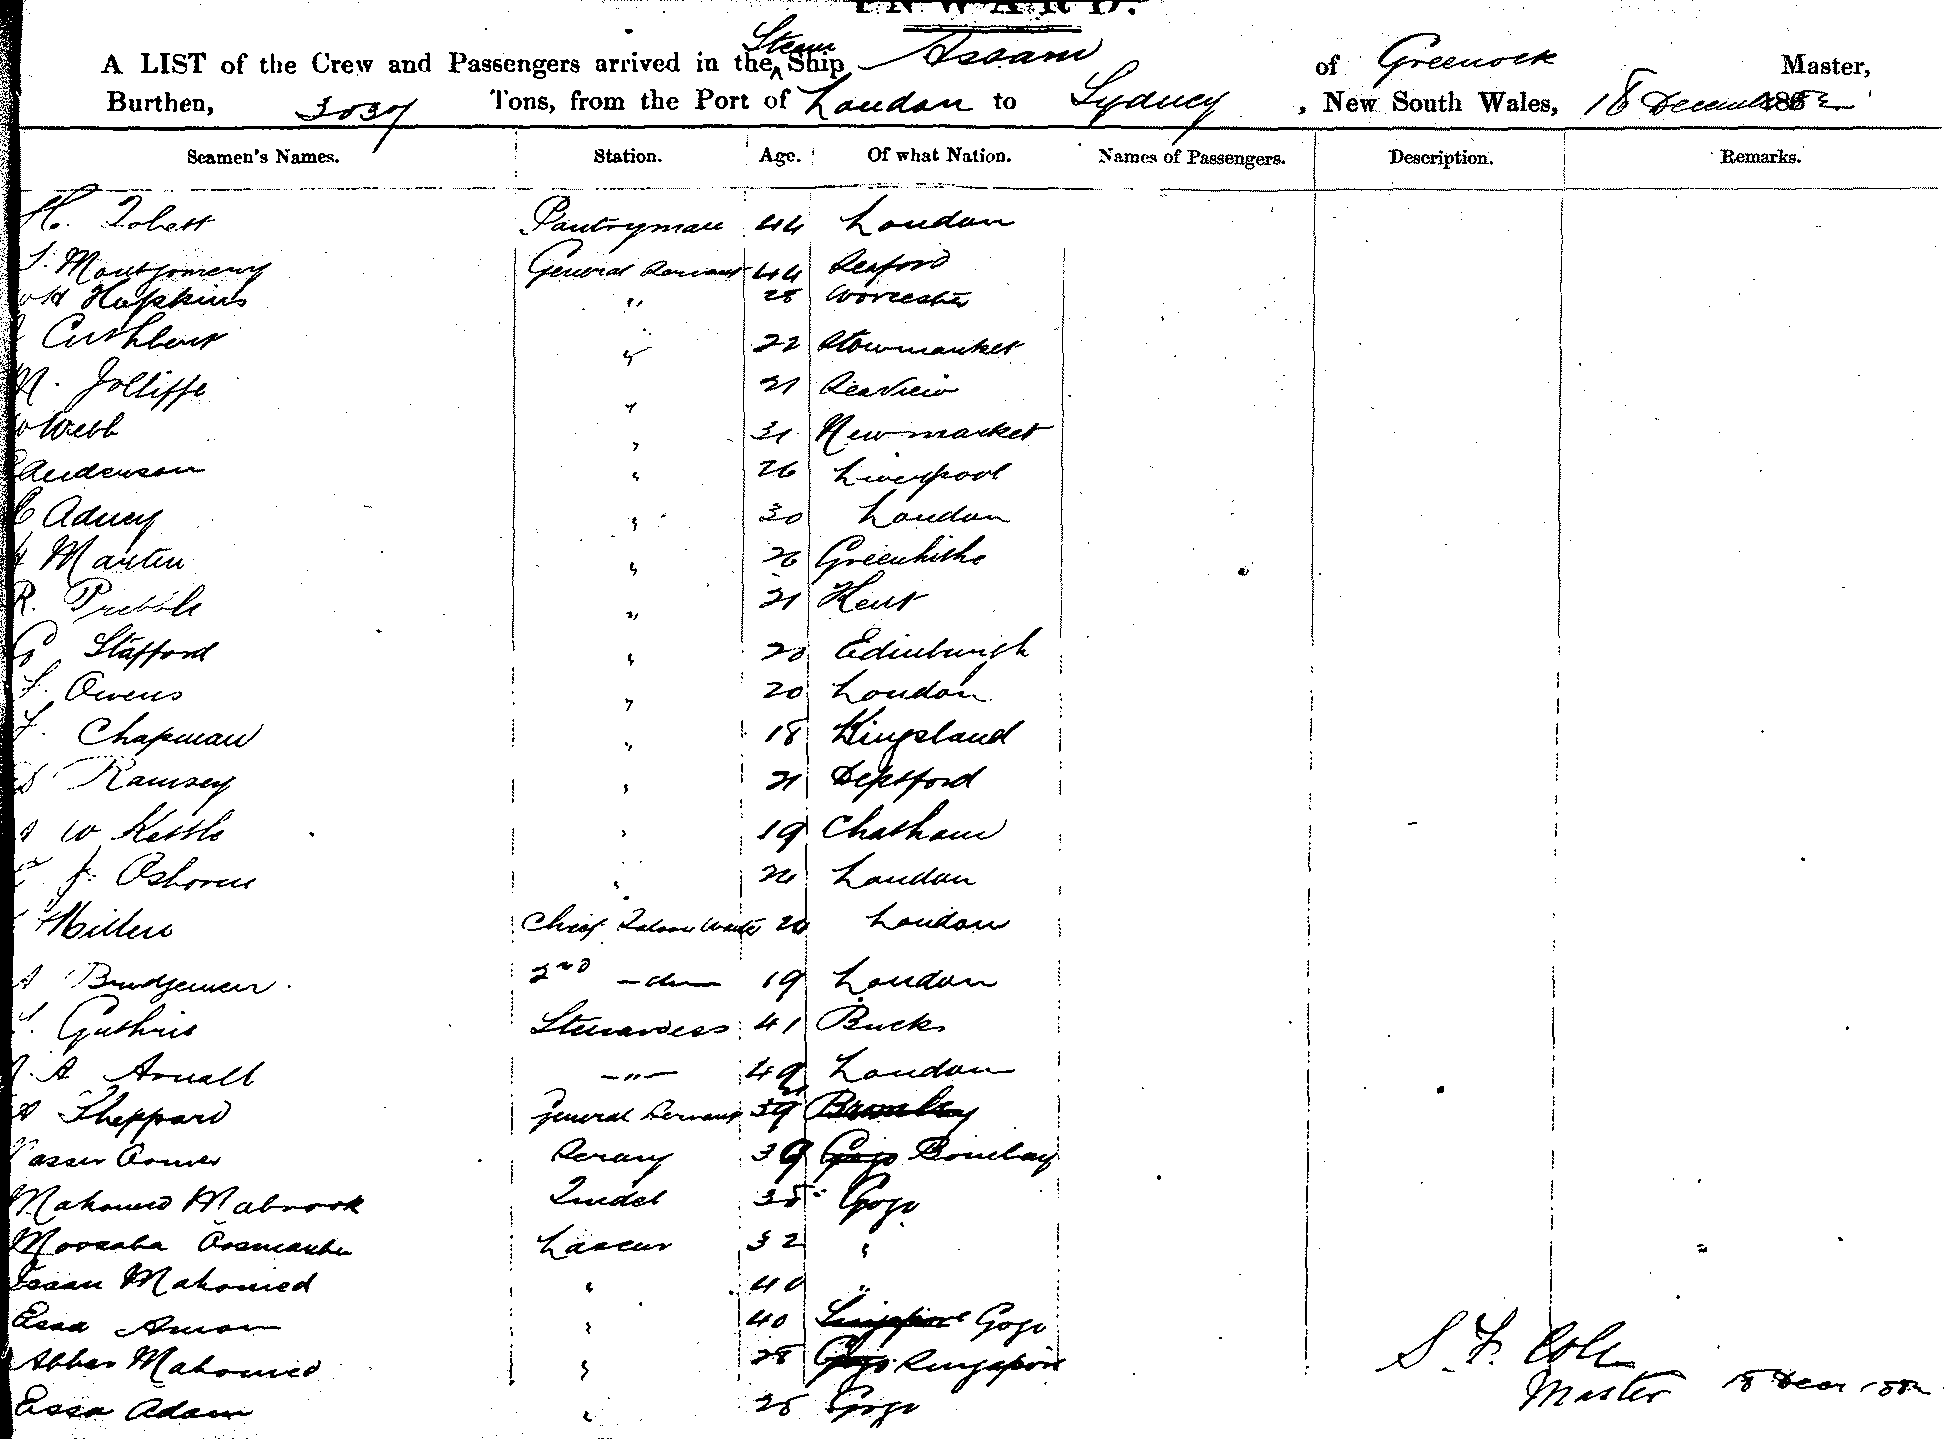 INWARD.
A LIST of the Crew and Passengers arrived in the Steam Ship Assam of Greenock Master,
Burthen, 3039 Tons, from the Port of London to Sydney, New South Wales, 18 December 1882
Seamen's Names. Station. Age. Of what Nation. Names of Passengers. Description. Remarks.
H. Pantryman 44 London
Montgomery General Servant 44 Seaford
H Hopkins " 28 Worcester
Cuthbert " 22 Stowmarket
Jolliffe " 21 Seaview
Webb " 31 Newmarket
Anderson " 26 Liverpool
C Adney " 30 London
H Martin " 26 Greenhithe
R. Prebble " 21 Kent
G Stafford " 20 Edinburgh
F. Owens " 20 London
F. Chapman " 18 Kingsland
Ramsey " 21 Deptford
W Kettle " 19 Chatham
J. Osborne " London
Millers Chief Saloon Waiter 20 London
A 2nd -do- 19 London
Guthrie Stewardess 41 Bucks
A Arnall -"- 49 London
Sheppard General Servant 39 Bromley
Serang 39 Gogo Bombay
Mahomed Mabrook Tindel 35 Gogo
Moosaba Lascar 32 "
Essau Mahomed " 40 "
Esaa " 40 Singapore Gogo
Abbas Mahomed " 28 Gogo Singapore
Essa Adam " 28 Gogo
S. F. Cole
Master 18 Decr 1882